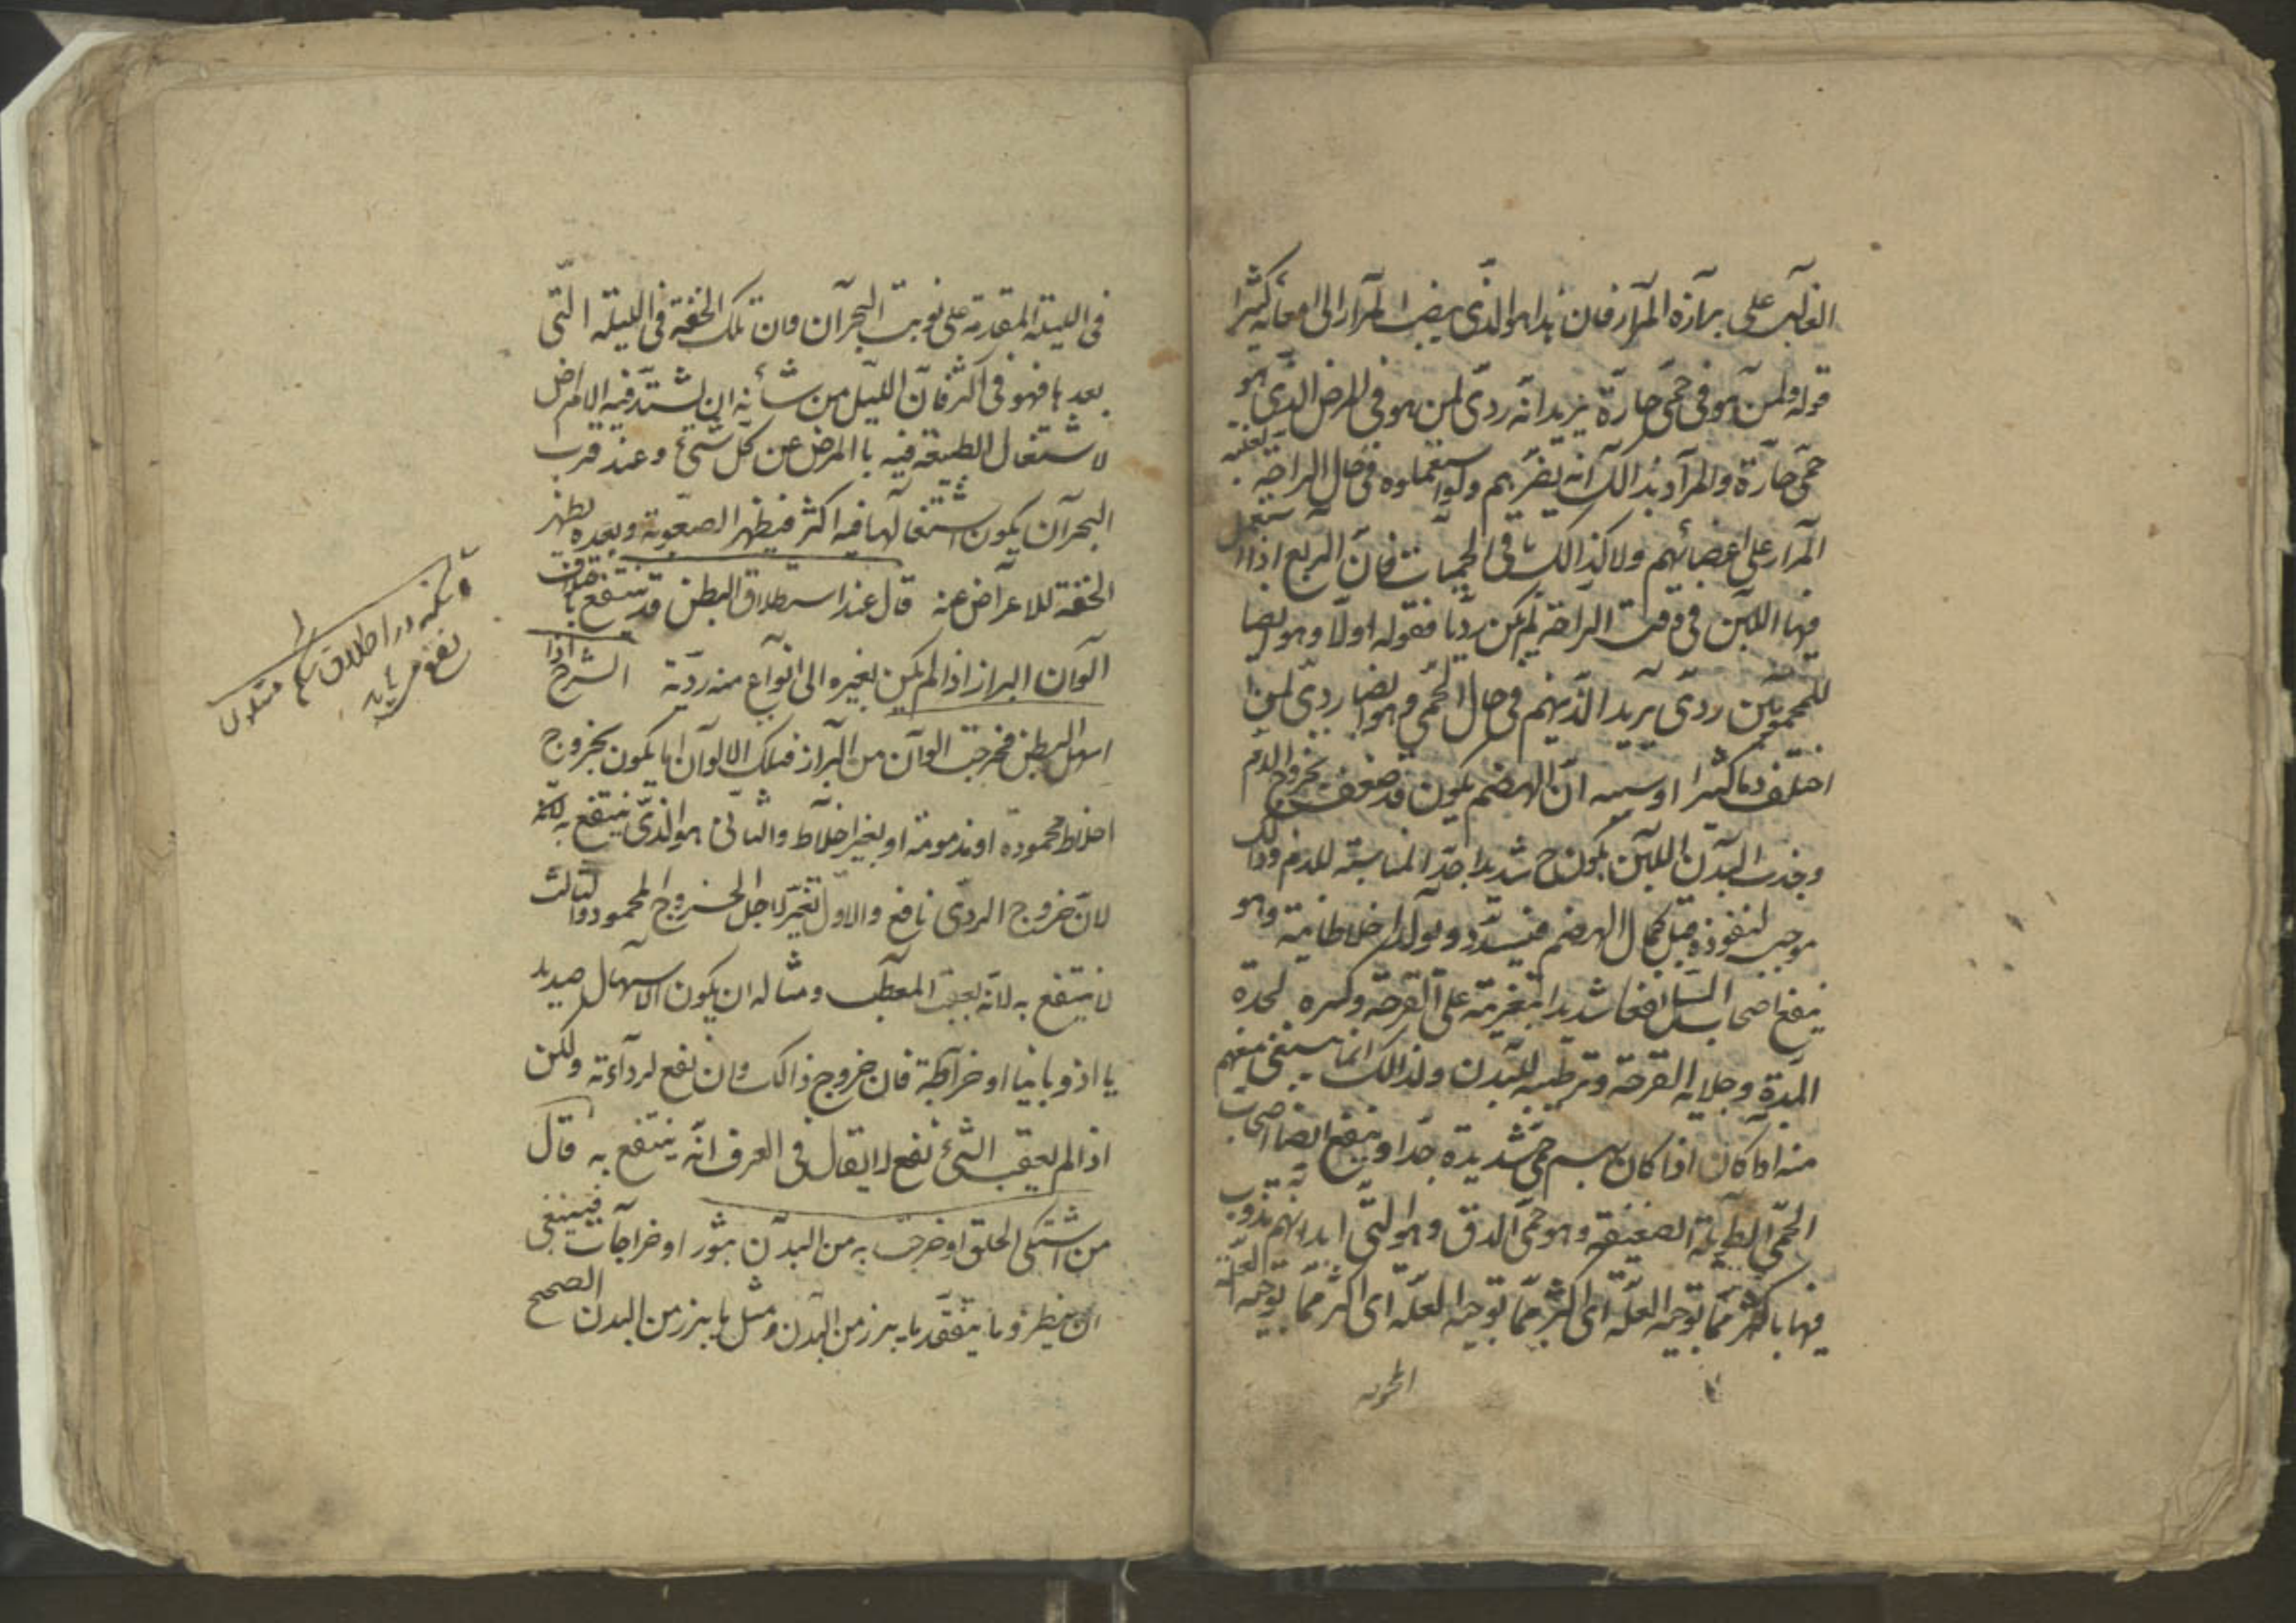 الغالب على برازه المرار فان هذا هو الذى ينصب المرار الى امعائه كثيرا
قوله ولمن هو فى حمى حارة يريد انه ردى لمن هو فى المرض الذى هو
حمى حارة والمراد بذالك انه يضر بهم ولو استعملوه فى حال الراحة لغلبة
المرار على اعضائهم ولا كذالك باقى الحميات فان الربع اذا استعمل
فيها اللبن فى وقت الراحة لم يكن رديا فقوله اولا وهو ايضا
للمحمومين ردى يريد الذينهم فى حال الحمى وهو ايضا ردى لمن
اختلف دما كثيرا وسببه ان الهضم يكون قد ضعف بخروج الدم
وجذب البدن اللبن يكون ح شديدا جدا لمناسبته للدم وذالك
موجب لنفوذه قبل كمال الهضم فيسدد ويولد اخلاطا نية وهو
ينفع اصحاب السل نفعا شديدا بتغريته على القرحة وكسره لحدة
المدة وجلايه القرحة وترطيبه للبدن ولذالك انما ينبغى منعهم
منه اذا كان اذا كان بهم حمى شديدة جدا وينفع ايضا اصحاب
الحمى الطويلة الضعيفة وهو حمى الدق وهو التى ابدانهم تذوب
فيها باكثر مما توجبه العلة اى اكثر مما توجبه العلة اى اكثر مما توجبه العلة
فى الليلة المتقدمة على نوبت البحران وان تلك الخفة فى الليلة التى
بعدها فهو فى اكثر فان الليل من شأنه ان يشتد فيه الامراض
لاشتغال الطبيعة فيه باالمرض عن كل شئ وعند قرب
البحران يكون اشتغالها فيه اكثر فيظهر الصعوبة وبعده يظهر
الخفة للاعراض عنه قال عند استطلاق البطن قد ينتفع باختلاف
الوان البراز اذا لم يكن تغيره الى انواع منه ردية الشرح اذا
اسهل البطن فخرجت الوان من البراز فتلك الالوان اما يكون بخروج
اخلاط محمودة او مذمومة او بغير اخلاط والثانى هو الذى ينتفع به لكنه
لان خروج الردى نافع والاول تغير لاجل الخروج المحمود والثالث
لا ينتفع به لانه يعقب المعطب ومثاله ان يكون الاسهال صديد
يا اذوبانيا او خراطة فان خروج ذالك وان نفع لرداءته ولكن
اذا لم يعقب الشئ نفع لا يقال فى العرف انه ينتفع به قال
من اشتكى الحلق او خرجت به من البدن بثور او خراجات فينبغى
ان ينظر وما يتفقد ما يبرز من البدن ومثل ما يبرز من البدن الصحيح
نفع مى يابد